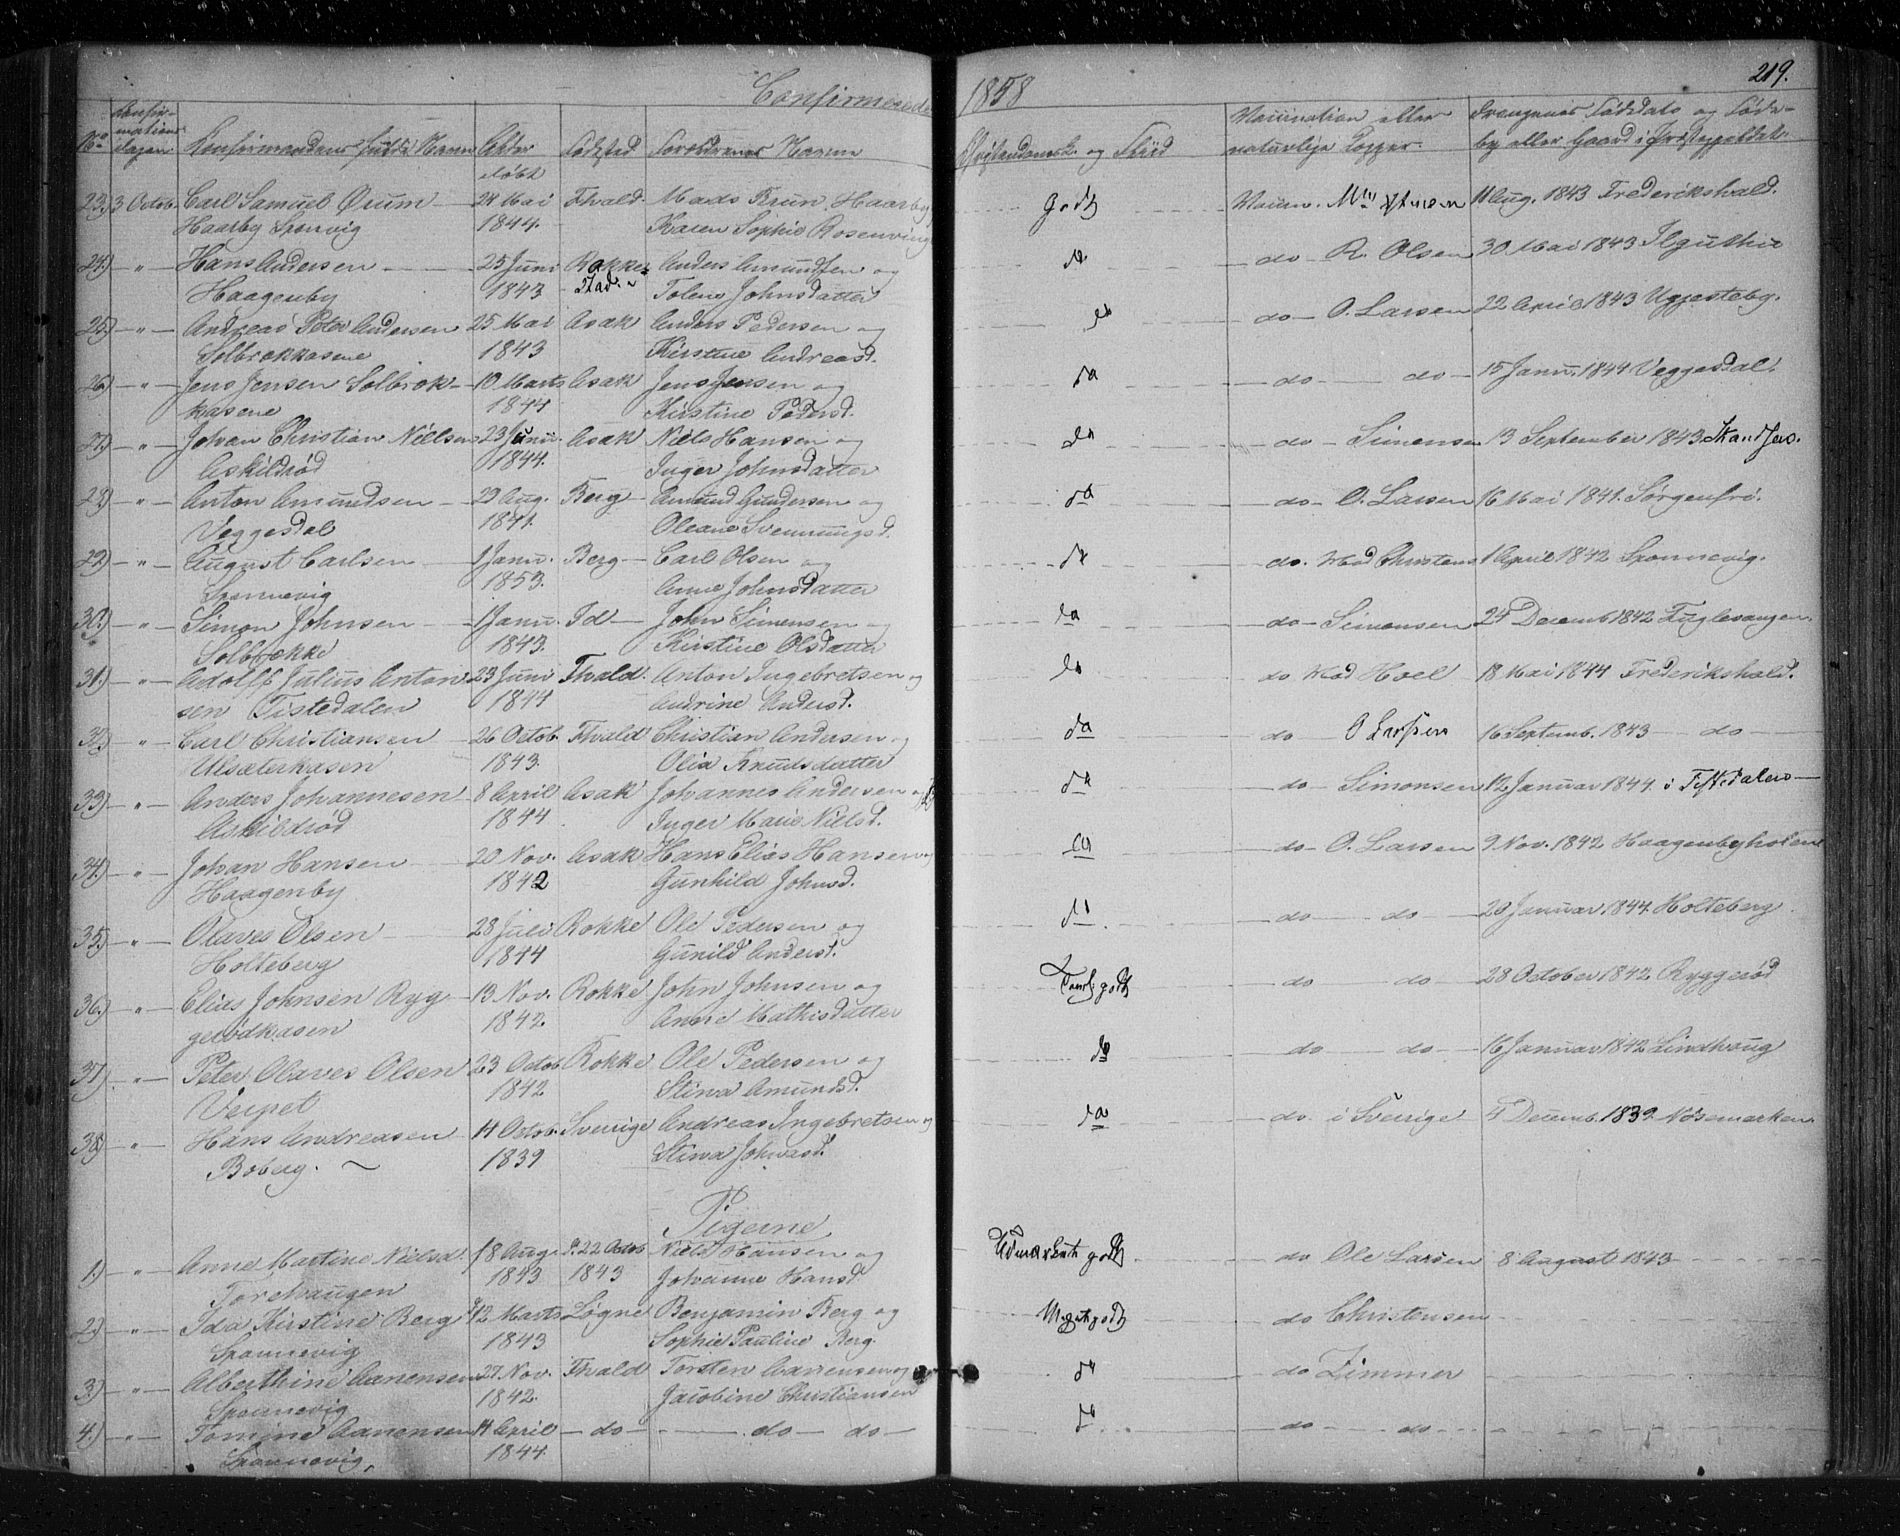 Confirmerede 1858 219.
No Confirmations Dagen Confirmandens fulde Navn Alder døbt Fødested Forældrenes Navne Christendomsk. og Fliid Vaccination eller naturlige Kopper. Drengenes Fødsdato og Fødeby eller Gaard i Præstegjeldet.
23) 3 Octob. Carl Samuel Ørum 24 Mai Fhvald. Mads Brun Haarby Godt Vaccin. 11 Aug. 1843 Frederikshald.
Haarby Sponvig 1844. Karen Sophie Rosenving
24) " Hans Andersen 25 Juni Rokke Anders Amundsen og do do R. Olsen 30 Mai 1843
Haagenby 1843 Tolene Johnsdatter
25) " Andreas Peter Andersen 25 Mai Asak Anders Pedersen og do do O. Larsen 22 April 1843
Solbrækkasene 1843 Kirstine Andreasd.
26) " Jens Jensen Solbræk- 10 Marts Asak Jens Jensen og do do do 15 Janu. 1844 Veggesdal.
kasene 1844 Kirstine Pedersd.
27) " Johan Christian Nielsen 23 Janu. Asak Niels Hansen og do do Simensen 13 September 1843
Askildrød 1844. Inger Johnsdatter
28) " Anton Amundsen 29 Aug. Berg Amund Gundersen og do do O. Larsen 16 Mai 1841. Sørgenfri.
Veggesdal 1841. Oleane Svenningsd.
29) " August Carlsen 1 Janu. Berg Carl Olsen og do do. Mad Christens 1 April 1842 Sponnevig.
Sponnevig 1853. Anne Johnsdatter
30) " Simon Johnsen 1 Janu. Id John Simensen og do do Simensen 24 Decemb 1842 Fuglevangen
Solbrække 1843. Kirstine Olsdatter
31) " Adolff Julius Anton 23 Juni Fhvald Anton Ingebretsen og do do Mad Hoel 18 Mai 1844 Frederikshald.
sen Tistedalen 1844 Andrine Andersd.
32) " Carl Christiansen 26 Octob. Fhvald Christian Andersen og do do O Larsen 16 Septemb. 1843 do
Ulsæterkasen 1843. Olia Knudsdatter
33) " Anders Johannesen 8 April Asak Johannes Andersen og do do Simonsen 12 Januar 1844. i Tistedalen
Askildrød 1844 Inger Marie Nielsd.
34) " Johan Hansen 20 Nov. Asak Hans Elias Hansen og do do O. Larsen 9 Nov. 1842 Haagenbyholene
Haagenby 1842 Gunhild Johnsd.
35) " Olaves Olsen 28 Juli Rokke Ole Pedersen og do. do do 20 Januar 1844. Holteberg
Holteberg 1844 Gunild Andersd.
36) " Elias Johnsen Ryg 13 Nov. Rokke John Johnsen og Temlig godt do do 28 October 1842 Ryggerød
gerødkasen 1842. Anne Mathisdatter
37) " Peter Olaves Olsen 23 Octob Rokke Ole Pedersen og do do do 16 Januar 1842 Lindhaug
Vejpet 1842 Stina Amundsd.
38) " Hans Andreasen 14 Octob. Sverige Andreas Ingebretsen og do do i Sverige 4 Decemb. 1839. Nøsemarken
Boberg. 1839 Stina Johnsd.
Pigerne
1.) " Anne Martine Nielsd. 18 Aug. 22 Octob Niels Hansen og Udmærket godt do Ole Larsen 8 August 1843
Torehaugen 1843 1843 Johanne Hansd
2.) " Ida Kirstine Berg 12 Marts Løgne Benjamin Berg og Meget godt do Christensen
Sponnevig 1843 Sophie Pauline Berg.
3) " Alberthine Aanonsen 27 Nov. Fhvald Torsten Aanensen og do do Zimmer
Sponnevig 1842. Jacobine Christiansen
4.) " Tomine Aanonsen 14 April do do do do do do
Sponnevig, 1844.